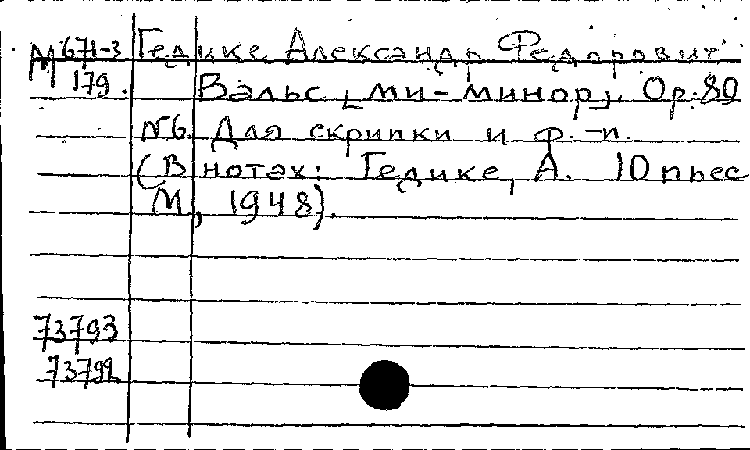 М 671-3 Гедике Александр Федорович
179. Вальс [ми-минор]. Ор. 80
№6. Для скрипки и ф.-п.
(В нотах: Гедике, А. 10 пьес
М, 1948).
73793
73792